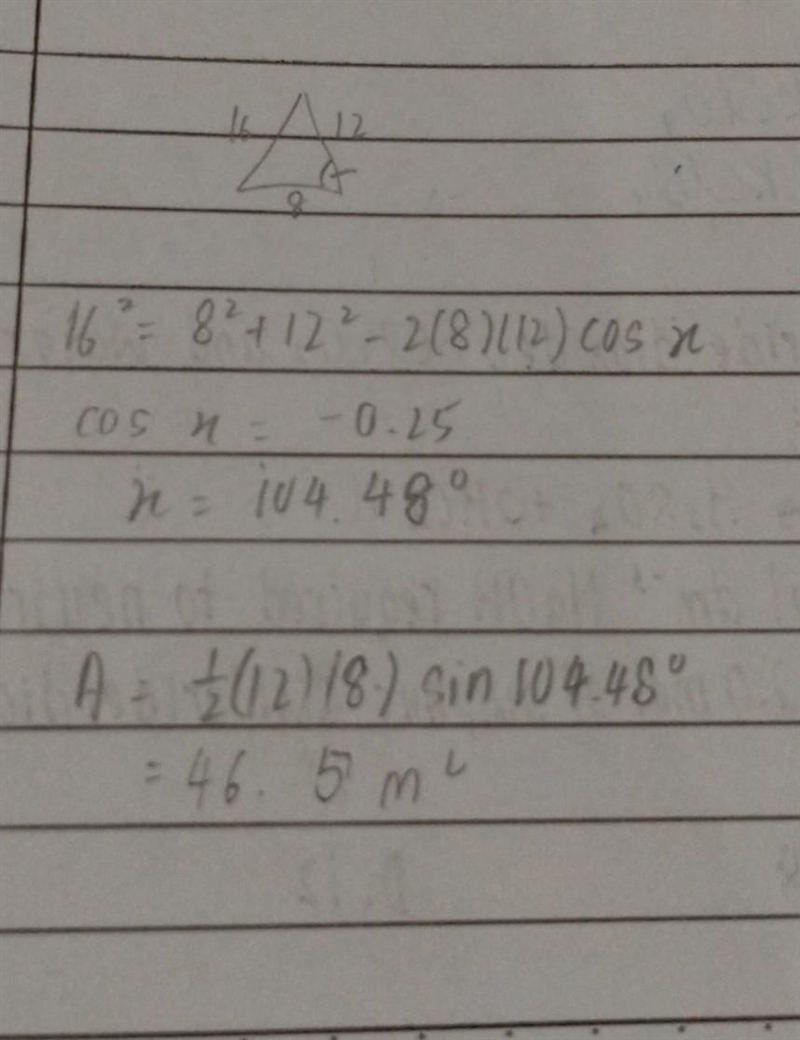 16 12
8
16² = 8² + 12² - 2(8)(12) cos x
cos x = -0.25
x = 104.48°
A = ½(12)(8) sin 104.48°
= 46.5 m²